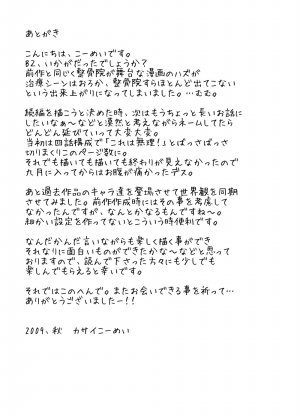 あとがき
こんにちは、こーめいです。
B2、いかがだったでしょうか?
前作と同じく整骨院が舞台な漫画のハズが
治療シーンはおろか、整骨院すらほとんど出てこない
という出来上がりになってしまいました。…むむ。
続編を描こうと決めた時、次はもうちょっと長いお話に
したいなぁ〜などと漠然と考えながらネームしてたら
どんどん延びていって大変大変。
当初は四話構成で「これは無理!」とばっさばっさ
切りまくりこのページ数に。
それでも描いても描いても終わりが見えなかったので
六月に入ってからはお腹が痛かったデス。
あと過去作品のキャラ達を登場させて世界観を同期
させてみました。前作作成時にはその事を考慮して
なかったんですが、なんとかなるもんですね〜。
細かい設定を作ってないとこういう時便利です。
なんだかんだ言いながらも楽しく描く事ができ
それなりに面白いものができたかな〜などと思って
おりますので、読んで下さった方々にも少しでも
楽しんでもらえると幸いです。
それではこのへんで。またお会いできる事を祈って…
ありがとうございましたー!!
2009、秋 カサイこーめい